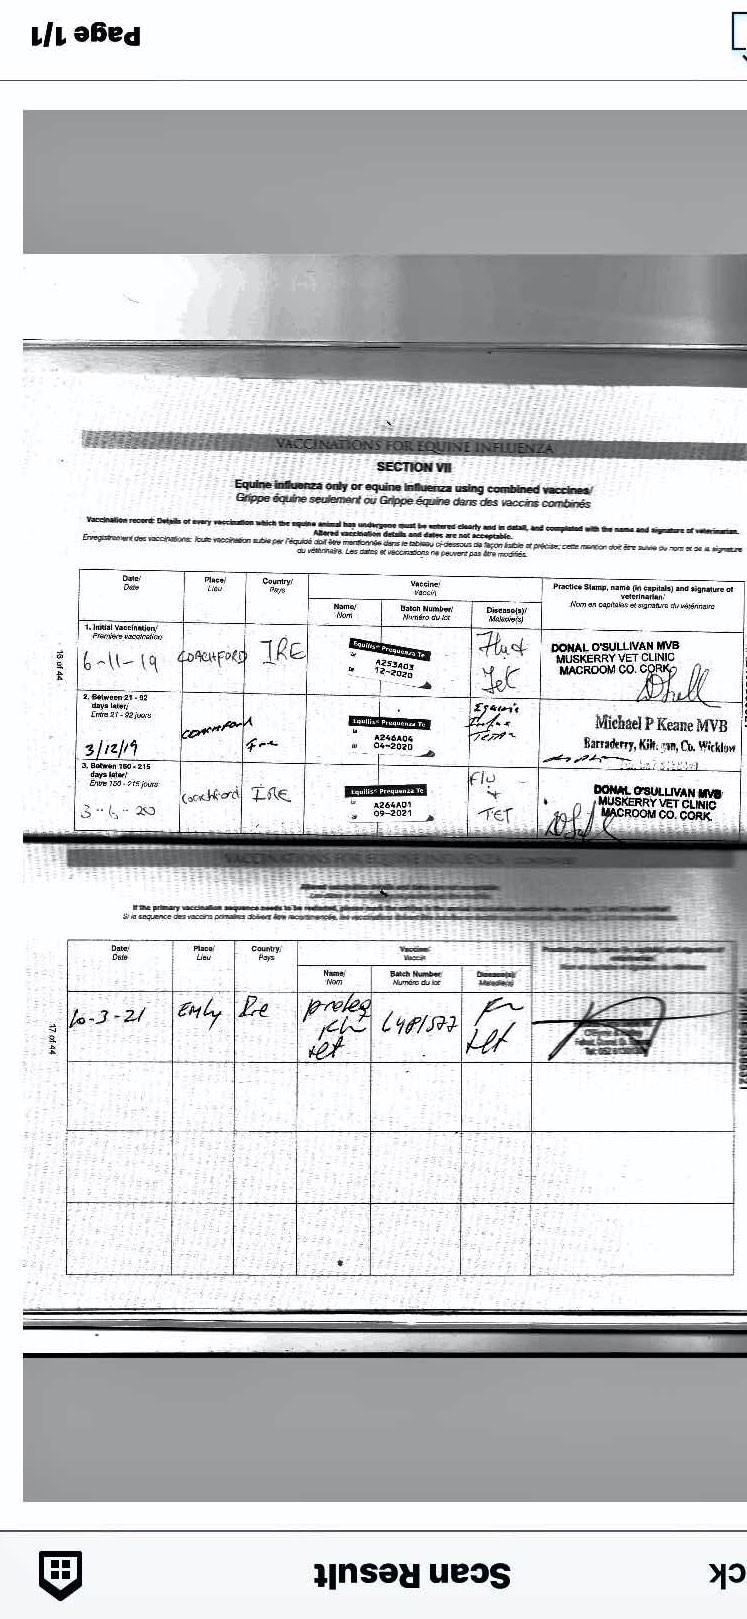 Page 1/1
VACCINATIONS FOR EQUINE INFLUENZA
SECTION VII
Equine influenza only or equine influenza using combined vaccines/
Grippe équine seulement ou Grippe équine dans des vaccins combinés
Vaccination record: Details of every vaccination which the equine animal has undergone must be entered clearly and in detail, and completed with the name and signature of veterinarian.
Altered vaccination details and dates are not acceptable.
Enregistrement des vaccinations: Toute vaccination subie par l'équidé doit être mentionnée dans le tableau ci-dessous de façon lisible et précise; cette mention doit être suivie du nom et de la signature
du vétérinaire. Les dates et vaccinations ne peuvent pas être modifiés.
Date/ Place/ Country/ Vaccine/ Practice Stamp, name (in capitals) and signature of
Date Lieu Pays Vaccin veterinarian/
Name/ Batch Number/ Disease(s)/ Nom en capitales et signature du vétérinaire
Nom Numéro du lot Maladie(s)
1. Initial Vaccination/
Première vaccination
6-11-19 COACHFORD IRE
Equilis Prequenza Te
A253A03
12-2020
Flu &
Tet
DONAL O'SULLIVAN MVB
MUSKERRY VET CLINIC
MACROOM CO. CORK
16 of 44
2. Between 21 - 92
days later/
Entre 21 - 92 jours
3/12/19 COACHFORD
Equilis Prequenza Te
A246A04
04-2020
Michael P Keane MVB
Barraderry, Co. Wicklow
3. Betwen 150 - 215
days later/
Entre 150 - 215 jours
Coachford IRE
Equilis Prequenza Te
A264A01
09-2021
Flu
+
TET
DONAL O'SULLIVAN MVB
MUSKERRY VET CLINIC
MACROOM CO. CORK.
If the primary vaccination sequence needs to be restarted,
Si la sequence des vaccins primaires doivent être recommencée,
Date/ Place/ Country/ Vaccine/
Date Lieu Pays Vaccin
Name/ Batch Number/ Disease(s)/
Nom Numéro du lot Maladie(s)
10-3-21 Emly Ire
Proteq
Flu
tet
L481577
Flu
tet
17 of 44
Scan Result
ck